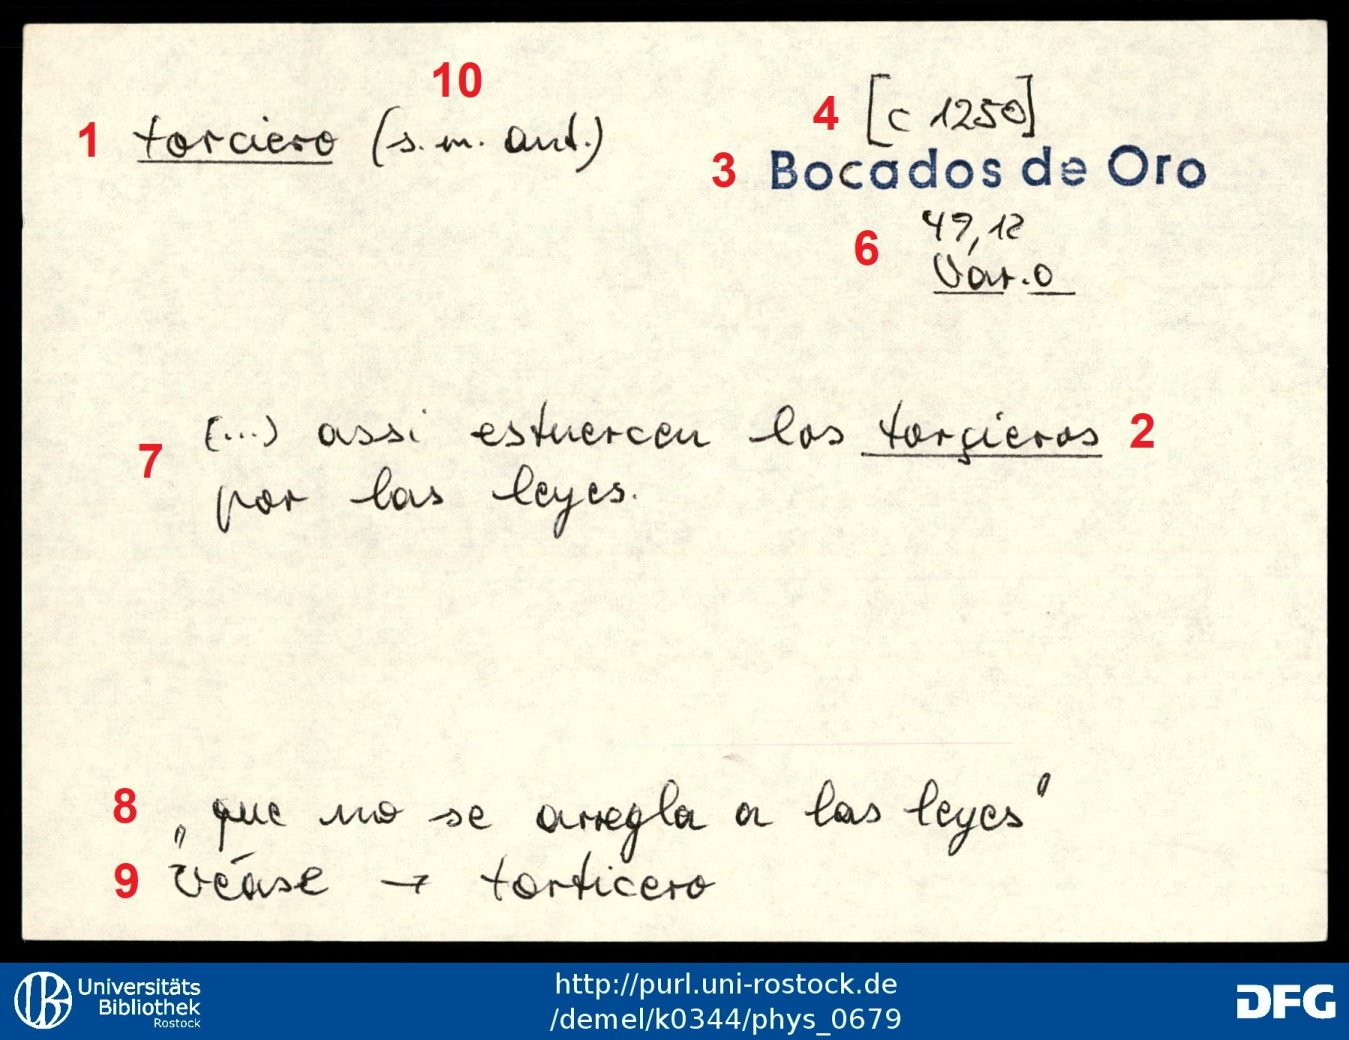 10
4 [c 1250]
1 torciero (s.m. ant.)
3 Bocados de Oro
6 49,12
Var. o
7 (...) assi estuercen los torçieros 2
por las leyes.
8 „que no se arregla a las leyes"
9 véase → torticero
Universitäts
Bibliothek
Rostock
http://purl.uni-rostock.de
/demel/k0344/phys_0679
DFG